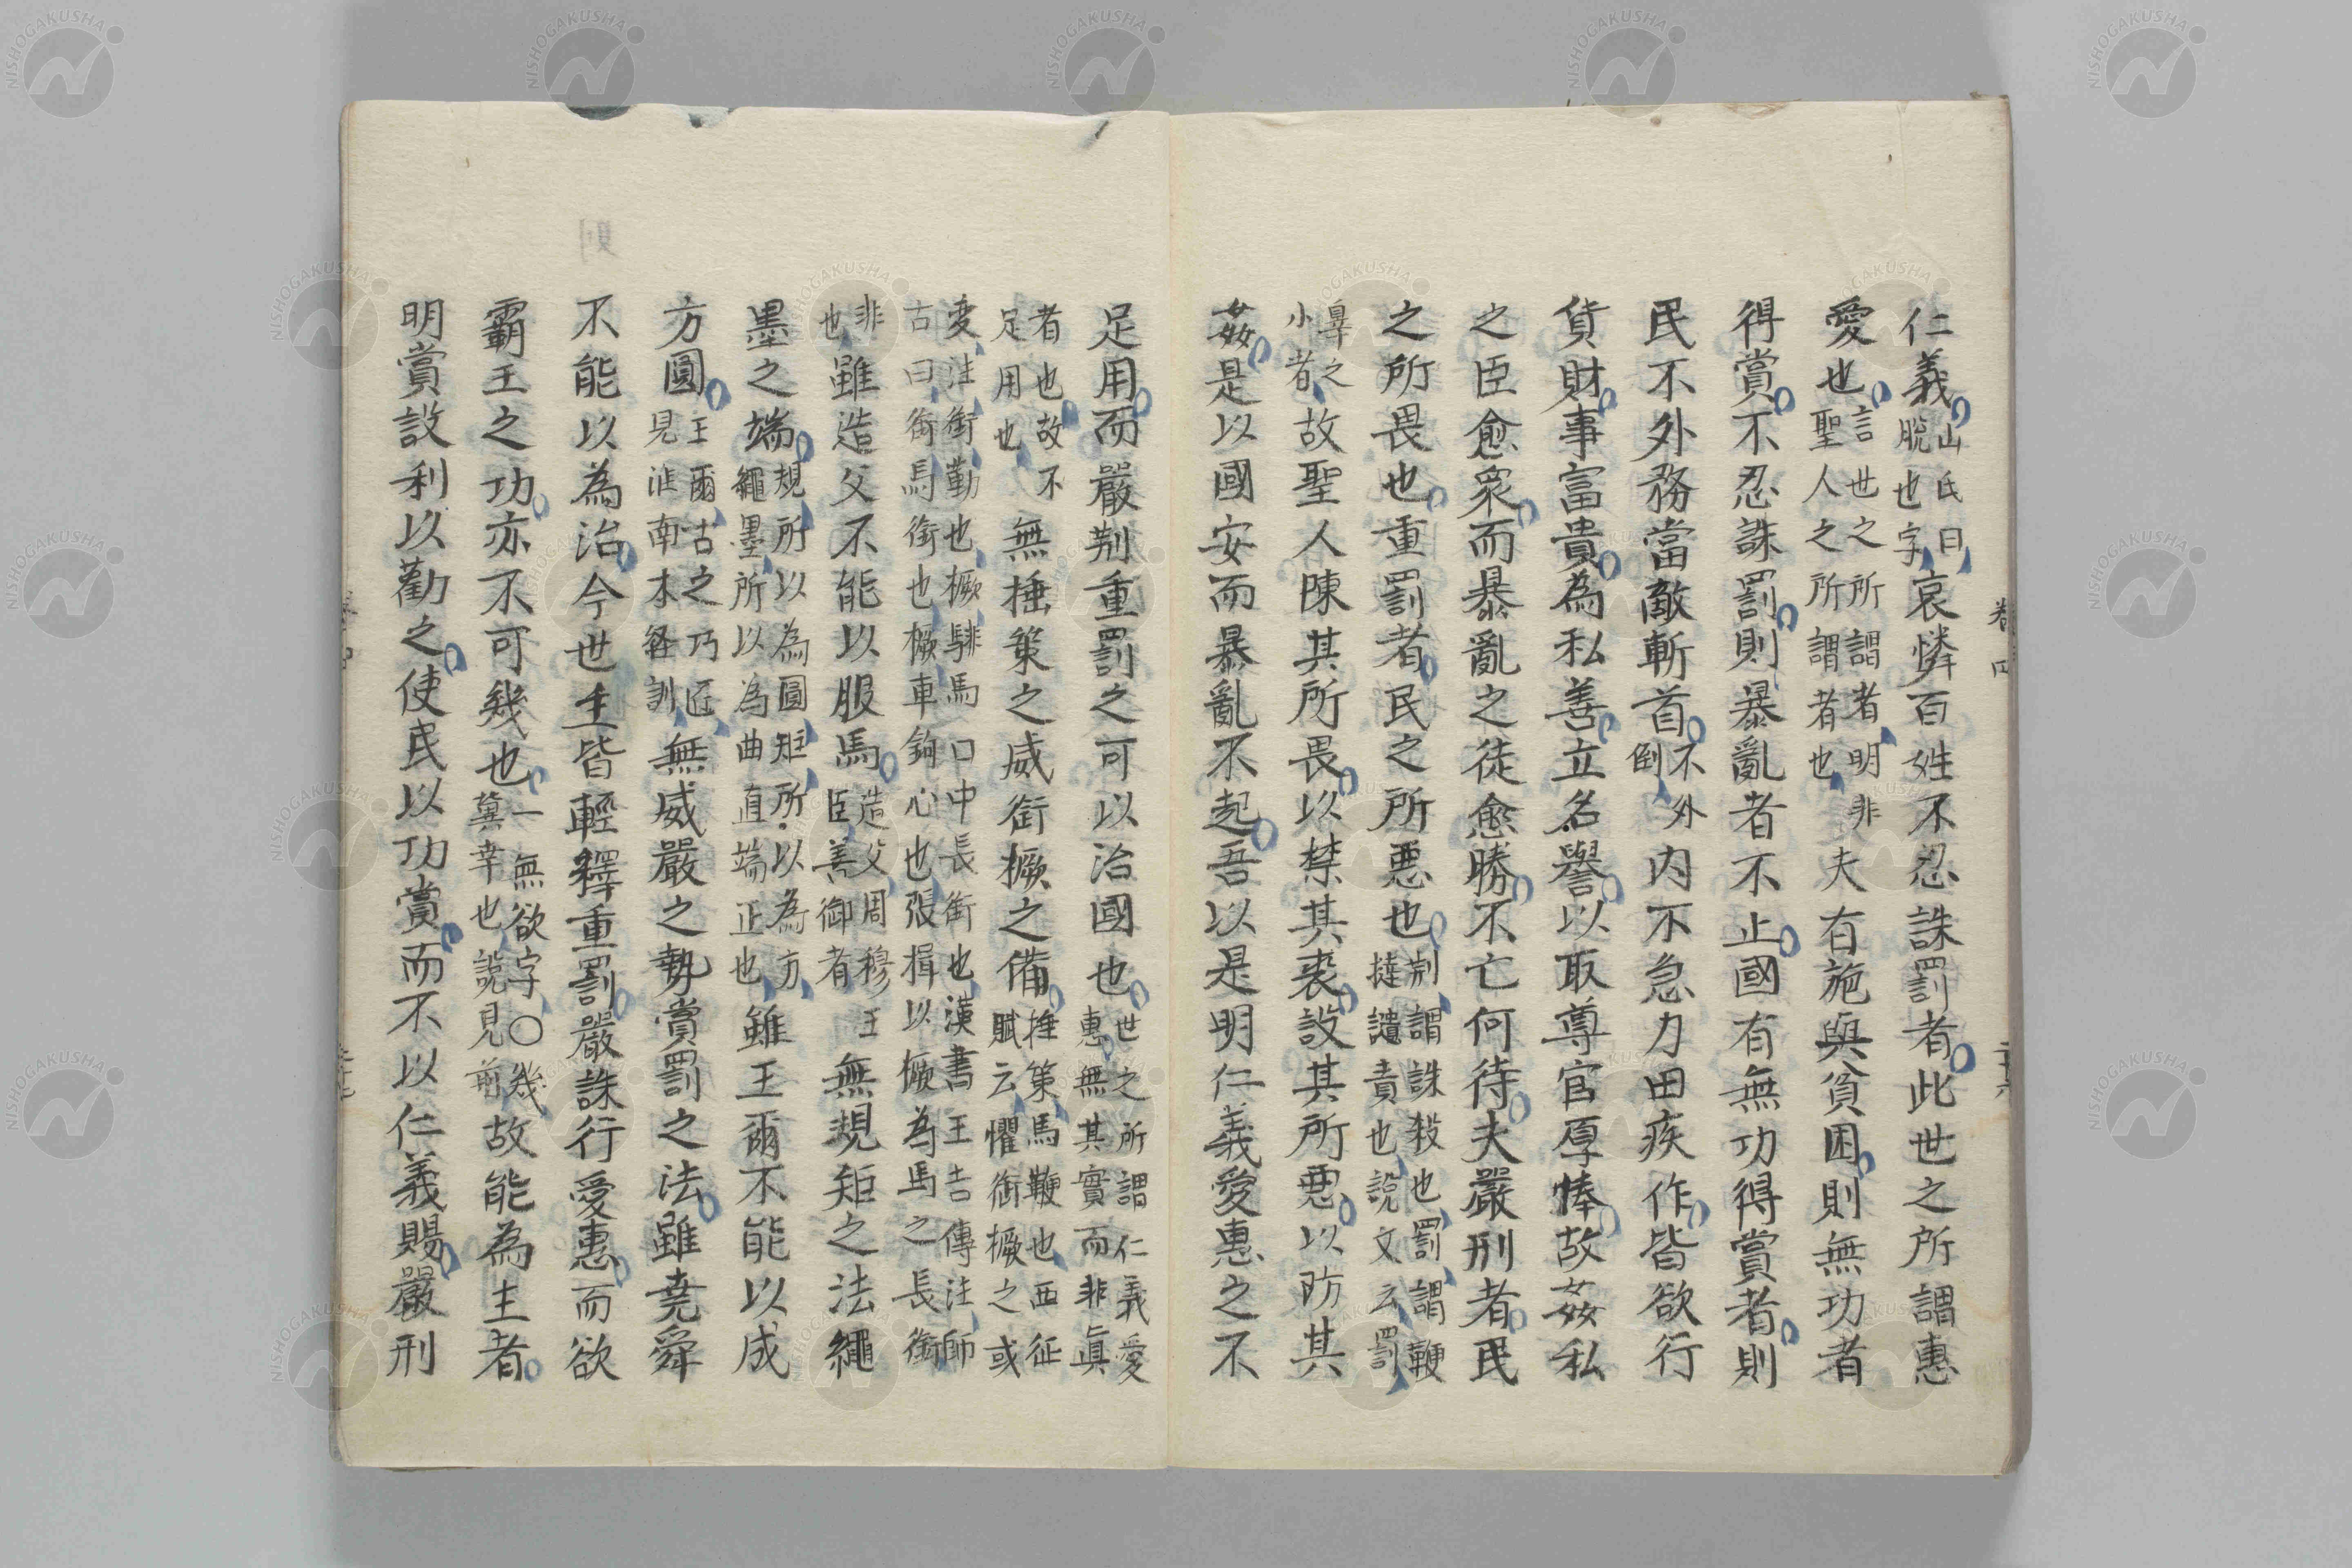 仁義山氏曰脱也字哀憐百姓不忍誅罰者此世之所謂惠
愛也言世之所謂者明非聖人之所謂者也夫有施與貧困則無功者
得賞不忍誅罰則暴亂者不止國有無功得賞者則
民不外務當敵斬首不外倒内不急力田疾作皆欲行
貨財事富貴為私善立名譽以取尊官厚俸故姦私
之臣愈衆而暴亂之徒愈勝不亡何待夫嚴刑者民
之所畏也重罰者民之所惡也荆謂誅殺也罰謂鞭撻譴責也說文云罰
辠之小者故聖人陳其所畏以禁其衺設其所惡以防其
姦是以國安而暴亂不起吾以是明仁義愛惠之不
卷四
二十六
足用而嚴荆重罰之可以治國也世之所謂仁義愛惠無其實而非眞
者也故不足用也無捶策之威銜橛之備捶策馬鞭也西征賦云懼銜橛之或
変注銜勒也橛騑馬口中長銜也漢書王吉傳注師古曰銜馬銜也橛車鉤心也張揖以橛為馬之長銜
非也雖造父不能以服馬造父周穆王臣善御者無規矩之法繩
墨之端規所以為圓矩所以為方繩墨所以為曲直端正也雖王爾不能以成
方圓王爾古之巧匠見淮南本経訓無威嚴之勢賞罰之法雖堯舜
不能以為治今世主皆輕釋重罰嚴誅行愛惠而欲
霸王之功亦不可幾也一無欲字〇幾冀幸也說見前故能為主者
明賞設利以勸之使民以功賞而不以仁義賜嚴刑